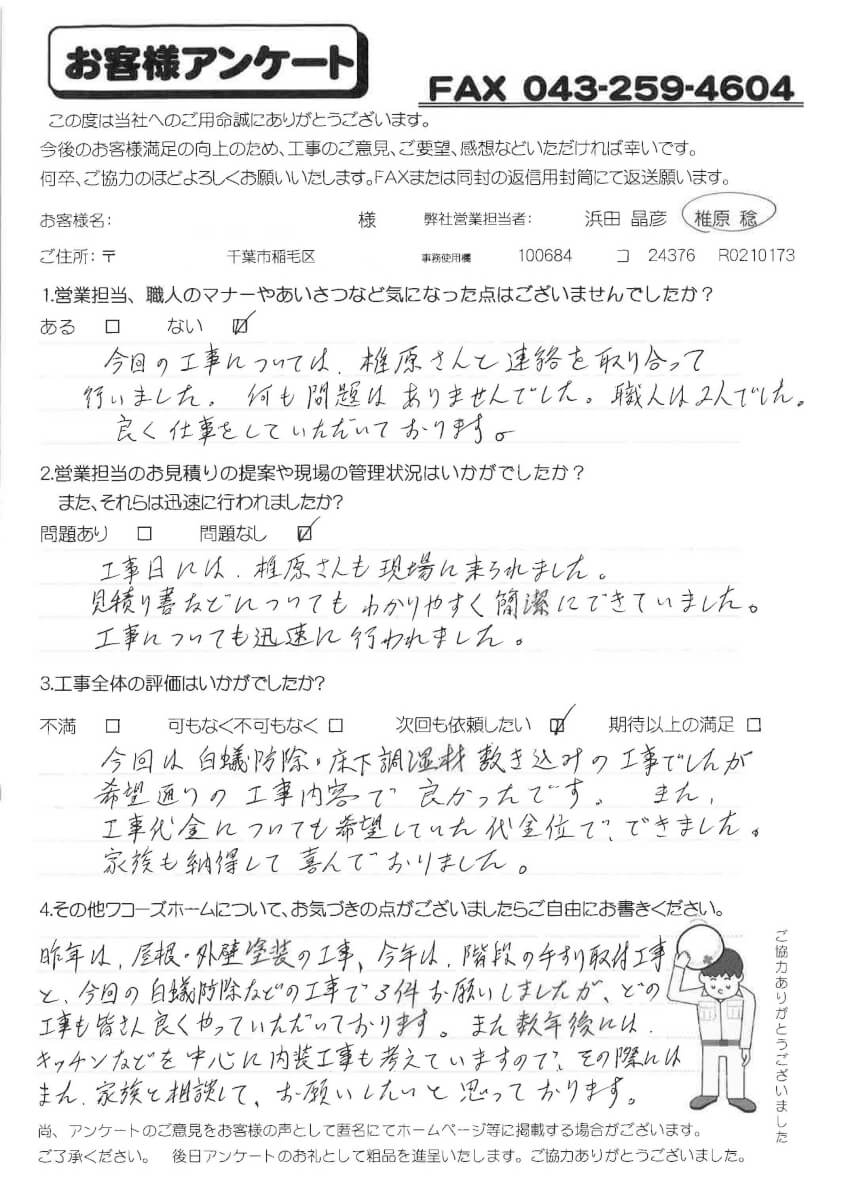 お客様アンケート
FAX 043-259-4604
この度は当社へのご用命誠にありがとうございます。
今後のお客様満足の向上のため、工事のご意見、ご要望、感想などいただければ幸いです。
何卒、ご協力のほどよろしくお願いいたします。FAXまたは同封の返信用封筒にて返送願います。
お客様名: 様 弊社営業担当者: 浜田 晶彦 椎原 稔
ご住所:〒 千葉市稲毛区 事務使用欄 100684 コ 24376 R0210173
1.営業担当、職人のマナーやあいさつなど気になった点はございませんでしたか?
ある □ ない ☑
今回の工事については、椎原さんと連絡を取り合って
行いました。何も問題はありませんでした。職人は2人でした。
良く仕事をしていただいております。
2.営業担当のお見積りの提案や現場の管理状況はいかがでしたか?
また、それらは迅速に行われましたか?
問題あり □ 問題なし ☑
工事日には、椎原さんも現場に来られました。
見積り書などについてもわかりやすく簡潔にできていました。
工事についても迅速に行われました。
3.工事全体の評価はいかがでしたか?
不満 □ 可もなく不可もなく □ 次回も依頼したい ☑ 期待以上の満足 □
今回は白蟻防除・床下調湿材敷き込みの工事でしたが
希望通りの工事内容で良かったです。また、
工事代金についても希望していた代金位で、できました。
家族も納得して喜んでおりました。
4.その他ワコーズホームについて、お気づきの点がございましたらご自由にお書きください。
昨年は、屋根・外壁塗装の工事、今年は、階段の手すり取付工事
と、今回の白蟻防除などの工事で3件お願いしましたが、どの
工事も皆さん良くやっていただいております。また数年後には、
キッチンなどを中心に内装工事も考えていますので、その際には
また、家族と相談して、お願いしたいと思っております。
ご協力ありがとうございました
尚、アンケートのご意見をお客様の声として匿名にてホームページ等に掲載する場合がございます。
ご了承ください。 後日アンケートのお礼として粗品を進呈いたします。ご協力ありがとうございました。